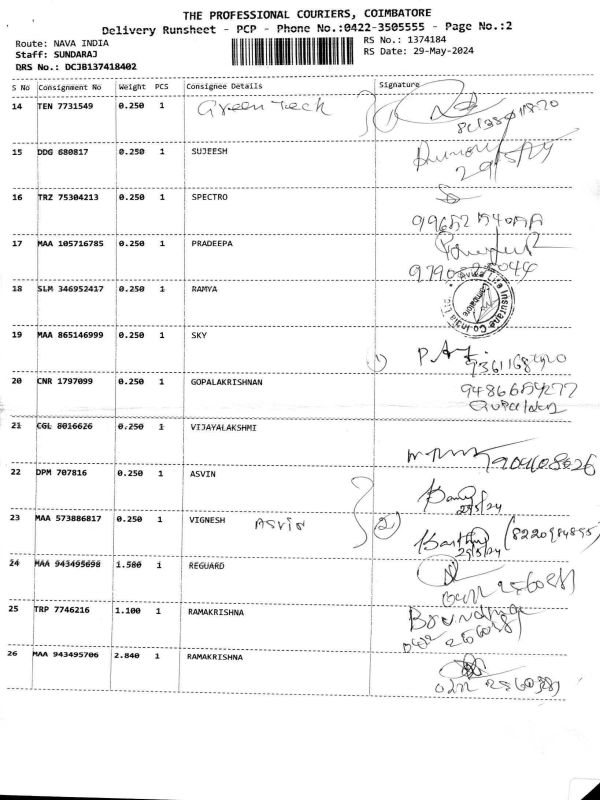 THE PROFESSIONAL COURIERS, COIMBATORE
Delivery Runsheet - PCP - Phone No.:0422-3505555 - Page No.:2
Route: NAVA INDIA
RS No.: 1374184
Staff: SUNDARAJ
RS Date: 29-May-2024
DRS No.: DCJB137418402
S No Consignment No Weight PCS Consignee Details Signature
14 TEN 7731549 0.250 1 Green Teck
15 DDG 680817 0.250 1 SUJEESH
29/5/24
16 TRZ 75304213 0.250 1 SPECTRO
17 MAA 105716785 0.250 1 PRADEEPA
18 SLM 346952417 0.250 1 RAMYA
19 MAA 865146999 0.250 1 SKY
1
20 CNR 1797099 0.250 1 GOPALAKRISHNAN
21 CGL 8016626 0.250 1 VIJAYALAKSHMI
22 DPM 707816 0.250 1 ASVIN
29/5/24
23 MAA 573886817 0.250 1 VIGNESH Asvin 2
29/5/24
24 MAA 943495698 1.580 1 REGUARD
25 TRP 7746216 1.100 1 RAMAKRISHNA
26 MAA 943495706 2.840 1 RAMAKRISHNA